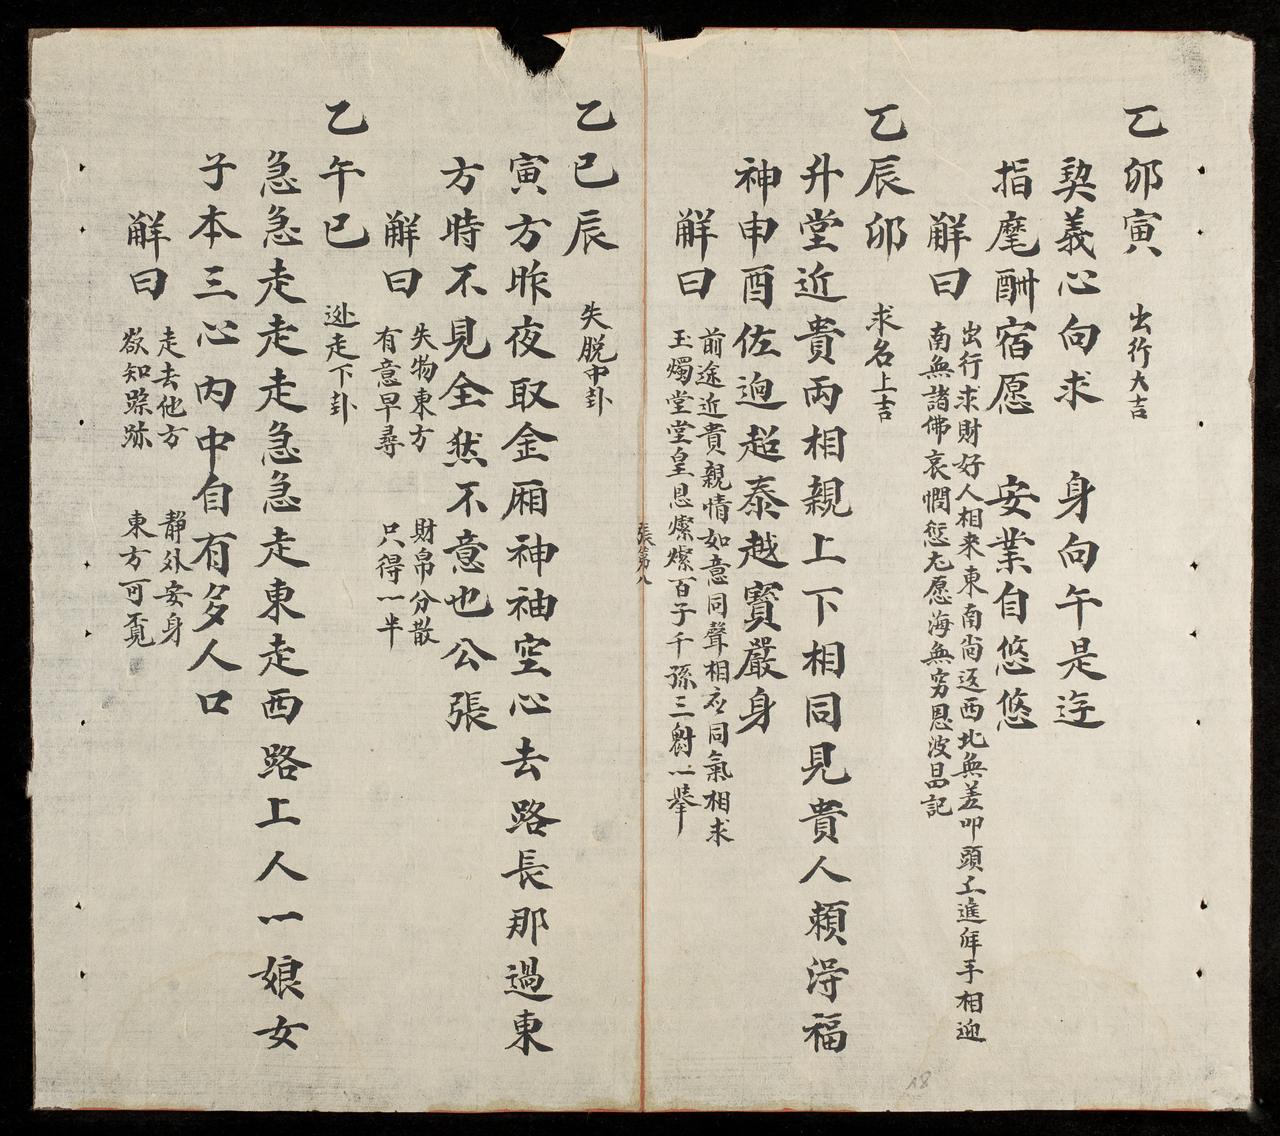 乙卯寅 出行大吉
契義心向求 身向午是迬
指麾酬宿愿 安業自悠悠
解曰
出行求財好人相来東南尚返西北無差叩頭工進拜手相迎
南無諸佛哀憫愆尤愿海無窮恩波昌記
乙辰卯 求名上吉
升堂近貴両相親上下相同見貴人賴得福
神申酉佐逈超泰越寳嚴身
解曰
前途近貴親情如意同聲相应同氣相求
玉燭堂堂皇恩燦燦百子千孫三對一舉
張第八
乙巳辰 失脱中卦
寅方昨夜取金厢神袖空心去路長那過東
方時不見全然不意也公張
解曰
失物東方 財帛分散
有意早尋 只得一半
乙午巳 迯走下卦
急急走走走急急走東走西路上人一娘女
子本三心内中自有多人口
解曰
走去他方 静外安身
欲知踪跡 東方可覔
18